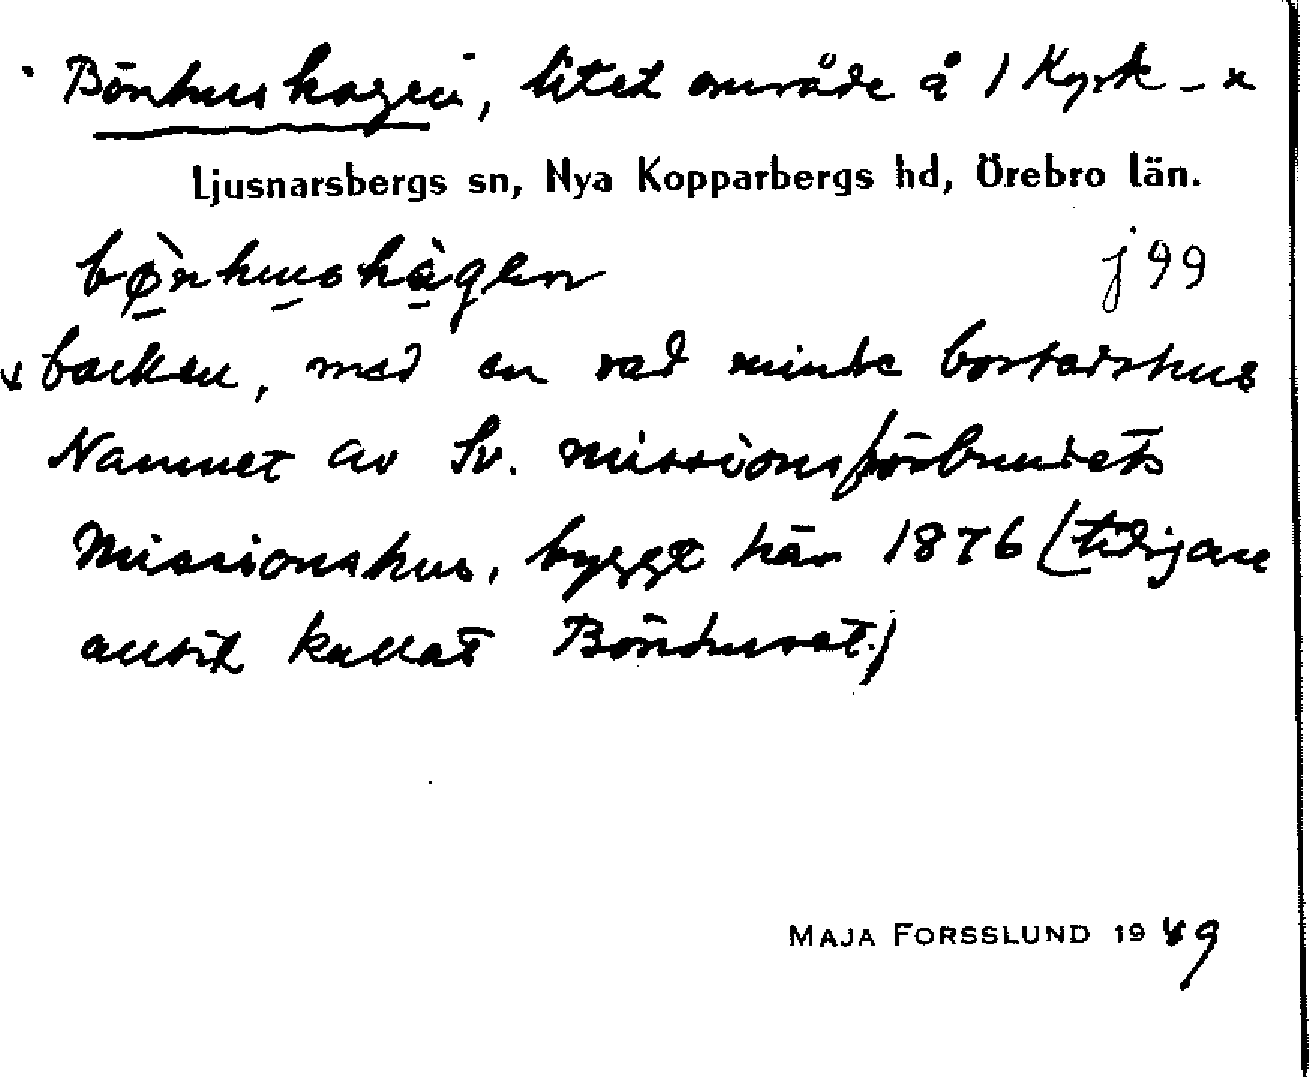 Bönhushagen, litet område å 1 Kyrk-
Ljusnarsbergs sn, Nya Kopparbergs hd, Örebro län.
bø̀nhushàgen j 99
backen, med en rad mindre bostadshus
Namnet av Sv. missionsförbundets
Missionshus, byggt här 1876 (tidigare
alltid kallat Bönhuset.)
MAJA FORSSLUND 1949